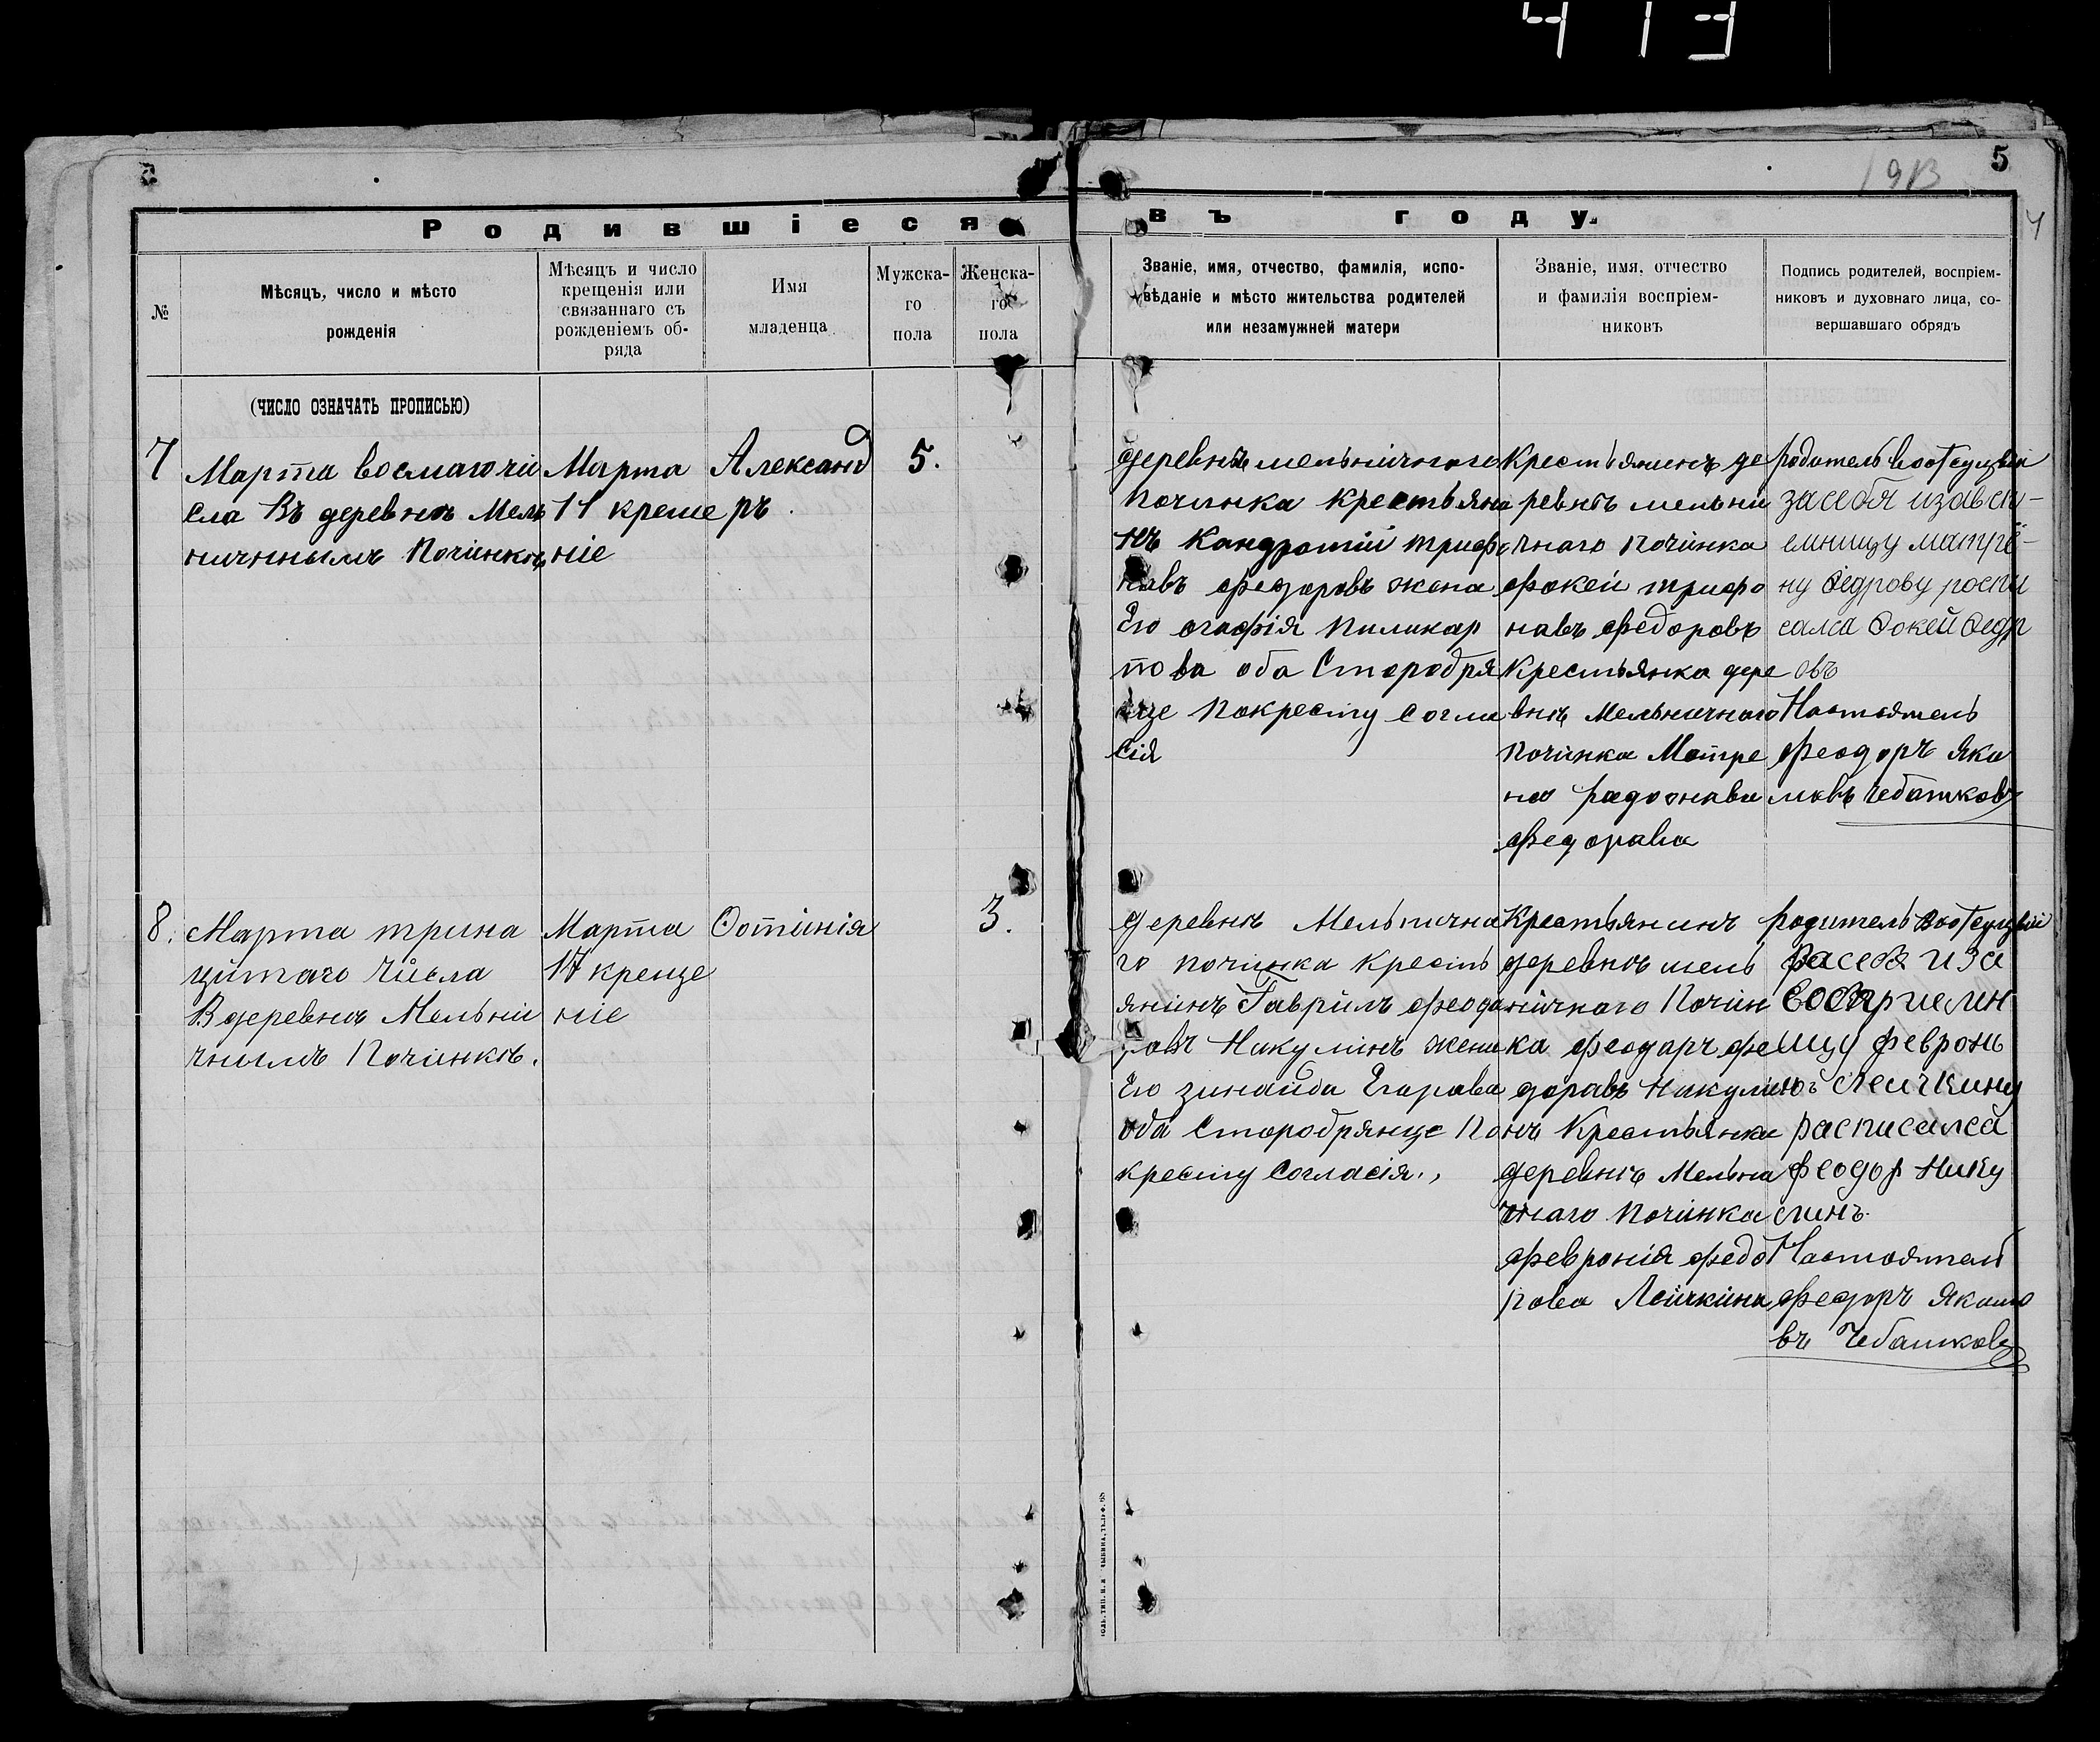 413
5
1913
4
Родившіеся въ году
№
Мѣсяцъ, число и мѣсто
рожденія
Мѣсяцъ и число
крещенія или
связаннаго съ
рожденіемъ об-
ряда
Имя
младенца
Мужска-
го
пола
Женска-
го
пола
Званіе, имя, отчество, фамилія, испо-
вѣданіе и мѣсто жительства родителей
или незамужней матери
Званіе, имя, отчество
и фамилія воспріем-
никовъ
Подпись родителей, воспріем-
никовъ и духовнаго лица, со-
вершавшаго обрядъ
(ЧИСЛО ОЗНАЧАТЬ ПРОПИСЬЮ)
7
Марта восмаго чи
сла Въ деревнѣ Мель
ничнымъ Починкѣ
Марта
11 креще
ніе
Александ
ръ.
5.
деревнѣ мельничнаго
Починка крестьяни
нъ Кандротій трифо
навъ федоровъ жена
Его огафія Поликар
пова оба Старобря
дце Покресту согла
сія
Крестьянинъ де
ревнѣ мельни
чнаго Починка
фокей трифо
навъ федоровъ
Крестьянка дере
внѣ Мельничнаго
Починка Матре
на
федорава
родитель
за себя и за вспр-
емницу матрё-
ну Ѳедрову роспи
салса Ѳокей Ѳедр
овъ
Настоятель
феодоръ Яка
мевъ Чебатковъ
8.
Марта трина
цйтаго Числа
В деревнѣ Мельни
чнымъ Починкѣ.
Марта
17 креще
ніе
Фотинія
3.
деревнѣ Мельнична
го починка кресть
янинъ Гаврилъ феодо
ровъ Никулинъ жена
Его зинаида Егорова
оба Старобрянце По
кресту Согласія.,
Крестьянинъ
деревнѣ мель
ничного Почин
ка феодаръ фе
доравъ Никулин
нъ Крестьянка
деревнѣ Мельни
чнаго Починка
феврония федо
рова Лейчкина
родитель
за себя и за
Восприемн
ицу февронь
Леичкину
расписалса
Феодор Нику
линъ.
Настоятель
феодоръ Якимо
въ Чебатковъ